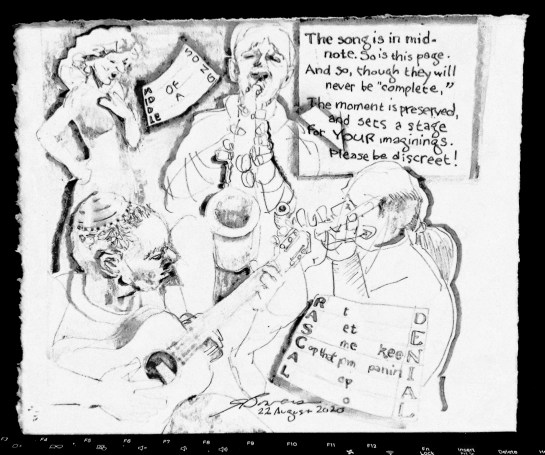 MIDDLE
OF
A
SONG
The song is in mid-
note. So is this page.
And so, though they will
never be "complete,"
The moment is preserved,
and sets a stage
For YOUR imaginings.
Please be discreet!
RASCAL
t
et
me kee
op that
op
o
DENIAL
22 August 2020
F3 F4 F5 F6 F7 F8 F9 F10 F11 F12 Fn Insert Delete
Lock